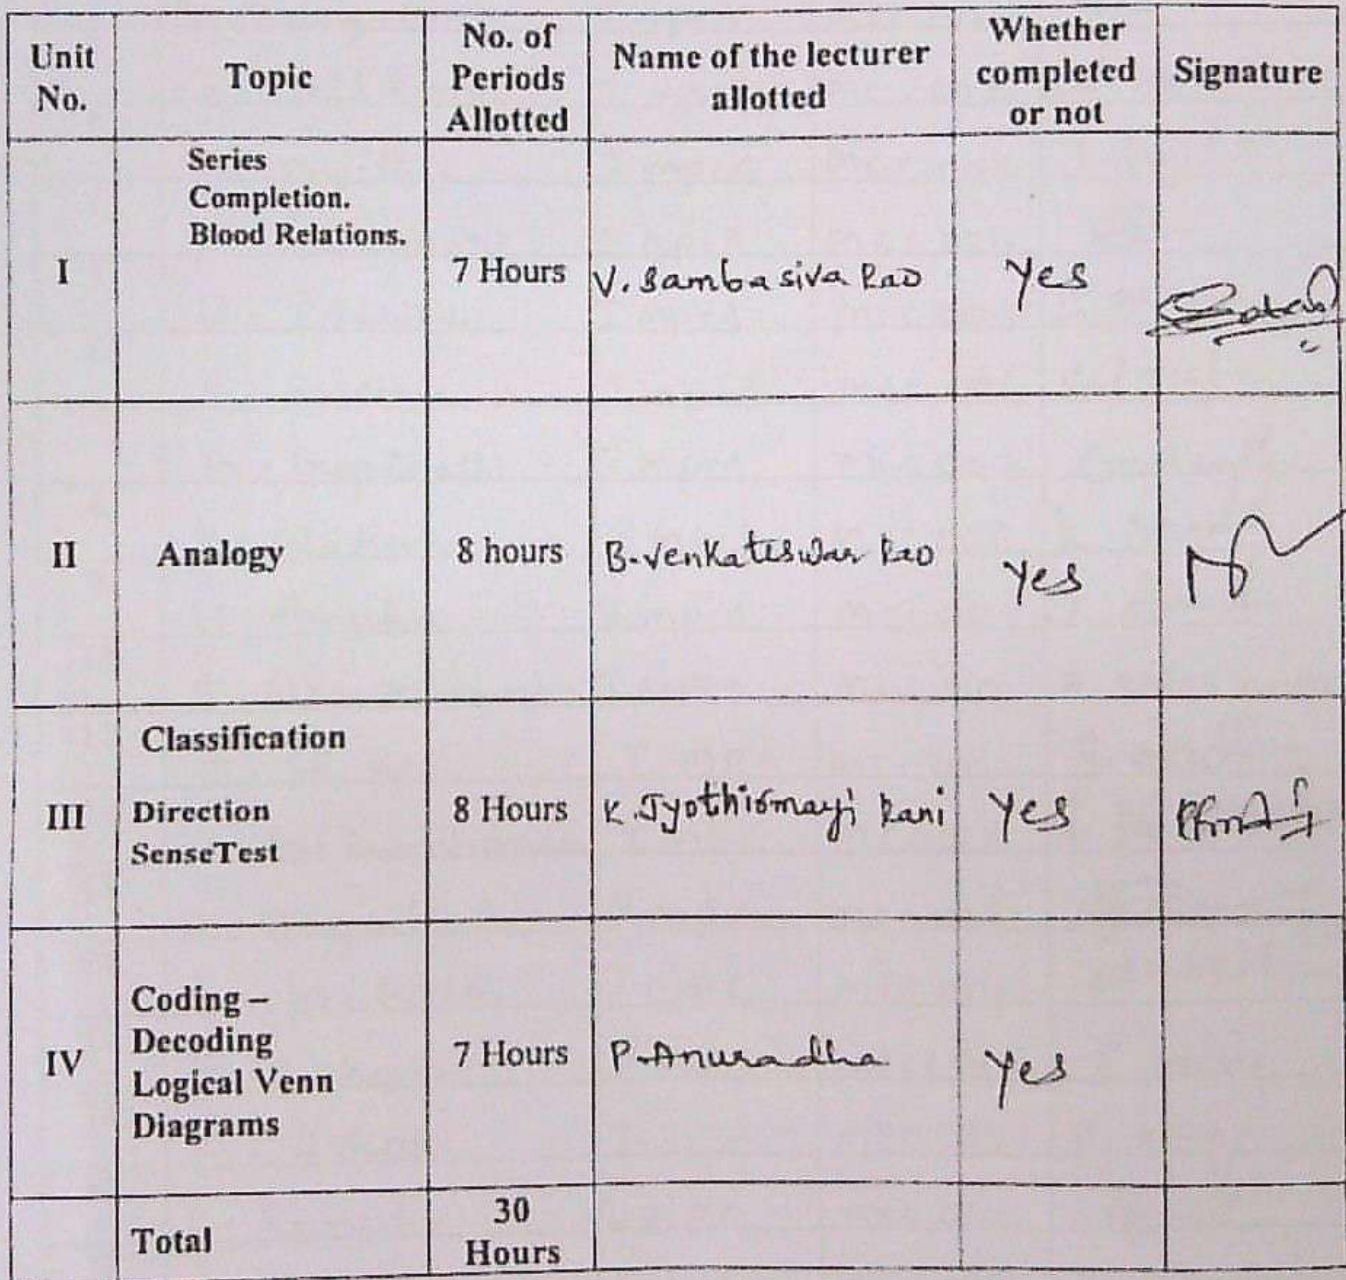 Unit No.
Topic
No. of Periods Allotted
Name of the lecturer allotted
Whether completed or not
Signature
Series
Completion.
Blood Relations.
I
7 Hours
V. Sambasiva Rao
Yes
II
Analogy
8 hours
B. Venkateswar Rao
Yes
Classification
III
Direction
SenseTest
8 Hours
K. Jyothirmayi Rani
Yes
IV
Coding –
Decoding
Logical Venn
Diagrams
7 Hours
P. Anuradha
Yes
Total
30
Hours